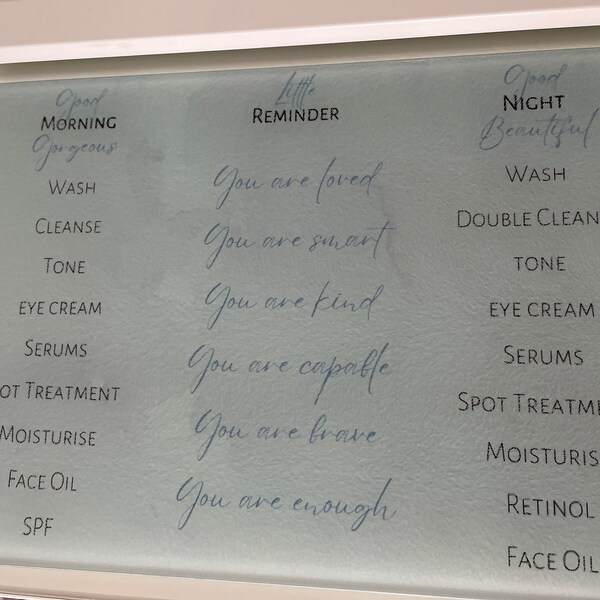 Good
MORNING
Gorgeous
WASH
CLEANSE
TONE
EYE CREAM
SERUMS
OT TREATMENT
MOISTURISE
FACE OIL
SPF
Little
REMINDER
You are loved
You are smart
You are kind
You are capable
You are brave
You are enough
Good
NIGHT
Beautiful
WASH
DOUBLE CLEAN
TONE
EYE CREAM
SERUMS
SPOT TREATME
MOISTURIS
RETINOL
FACE OIL